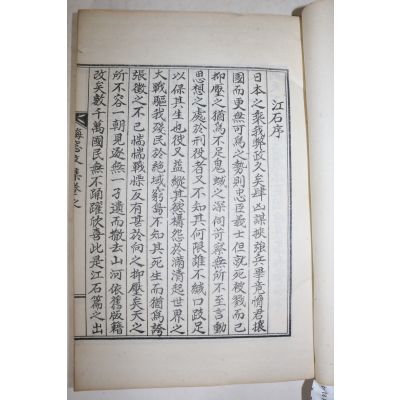 江石序
日本之乘我弊政久矣肆凶謀挾強兵畢竟慉君攘
國而更無可爲之勢則忠臣義士但就死被戮而已
抑壓之猶爲不足鬼蜮之深伺苛察無所不至言動
思想之處於刑役者又不知其何限雖不緘口跂足
以保其生也彼又益縱其狼
怨於滿淸起世界之
大戰驅我殘民於絶域窮島不知其死生而猶爲誇
張徵之不已惴惴戰慄反有甚於向之抑壓矣天之
所不容一朝見逐無一孑遺而撤去山河依舊版籍
改矣數千萬國民無不踊躍欣喜此是江石篇之出
悔窩文集卷之